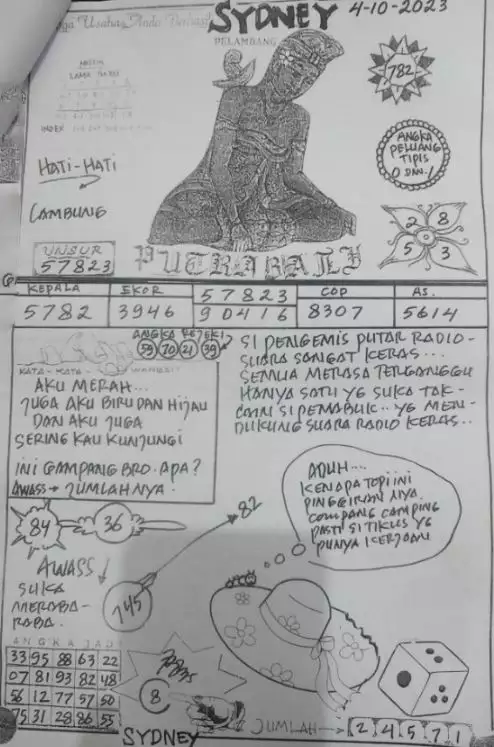 SYDNEY 4-10-2023
PELAMBANG
LAMA
INDEX
782
HATI-HATI
ANGKA
PELUANG
TIPIS
0 DAN 1
LAMBUNG
2 8
5 3
UNSUR
57823
PUTRA RAJEH
KEPALA EKOR 57823 COP AS.
5782 3946 90416 8307 5614
ANGKA REJEKI
59 70 21 39
KATA-KATA WANGSIT
AKU MERAH...
JUGA AKU BIRU DAN HIJAU
DAN AKU JUGA
SERING KAU KUNJUNGI
INI GAMPANG BRO. APA?
AWASS → JUMLAHNYA.
SI PENGEMIS PUTAR RADIO-
SUARA SANGAT KERAS...
SEMUA MERASA TERGANGGU
HANYA SATU YG SUKA TAK-
LAIN SI PEMABUK.. YG MEN-
DUKUNG SUARA RADIO KERAS..
ADUH...
KENAPA TOPI INI
PINGGIRAN NYA.
COMPANG CAMPING
PASTI SI TIKUS YG
PUNYA KERJAAN
84 36
82
AWASS
SUKA
MERABA-
RABA.
745
ANGKA JADI
33 95 88 63 22
07 81 93 82 48
56 12 77 57 50
75 31 28 86 55
8
SYDNEY
JUMLAH → 2 4 5 7 1